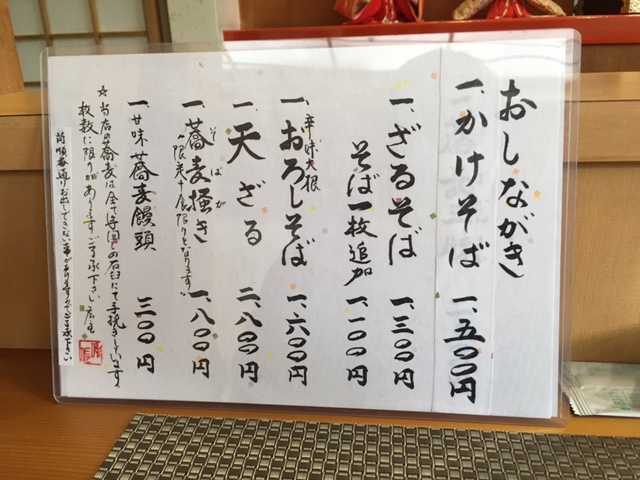 おしながき
一、かけそば 一、五〇〇円
一、ざるそば 一、三〇〇円
そば一枚追加 一、一〇〇円
辛味大根
一、おろしそば 一、六〇〇円
一、天ざる 二、八〇〇円
一、蕎麦掻き 一、八〇〇円
そばがき
一、甘味 蕎麦饅頭 三〇〇円
☆当店の蕎麦は全て毎回この石臼にて手挽き
枚数に限りがありますご了承下さい 店主
尚順番通りお出しできない事がありますがご了承下さい